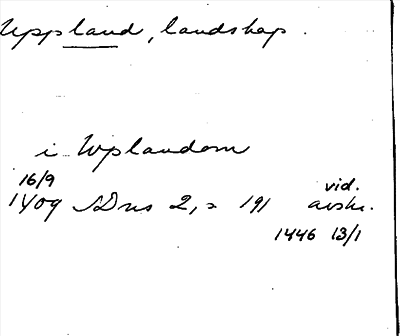 Uppland, landskap.
i Wplandom
16/9
1409 SDns 2, s 191 vid. avskr.
1446 13/1